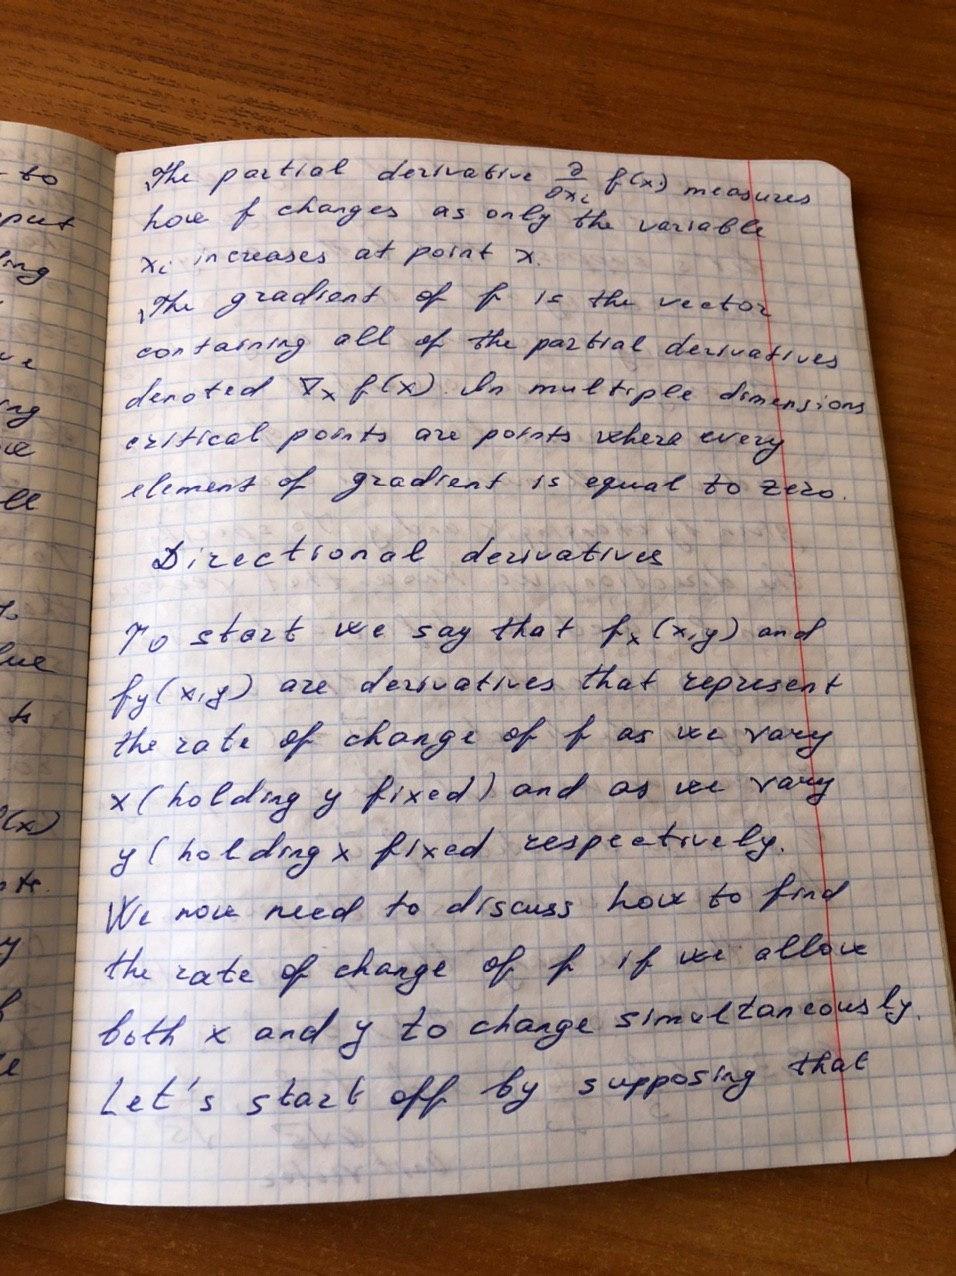 The partial derivative ∂/∂xᵢ f(x) measures
how f changes as only the variable
xᵢ increases at point x.
The gradient of f is the vector
containing all of the partial derivatives
denoted ∇ₓ f(x). In multiple dimensions
critical points are points where every
element of gradient is equal to zero.
Directional derivatives
To start we say that fₓ(x,y) and
fy(x,y) are derivatives that represent
the rate of change of f as we vary
x (holding y fixed) and as we vary
y (holding x fixed respectively.
We now need to discuss how to find
the rate of change of f if we allow
both x and y to change simultaneously.
Let's start off by supposing that